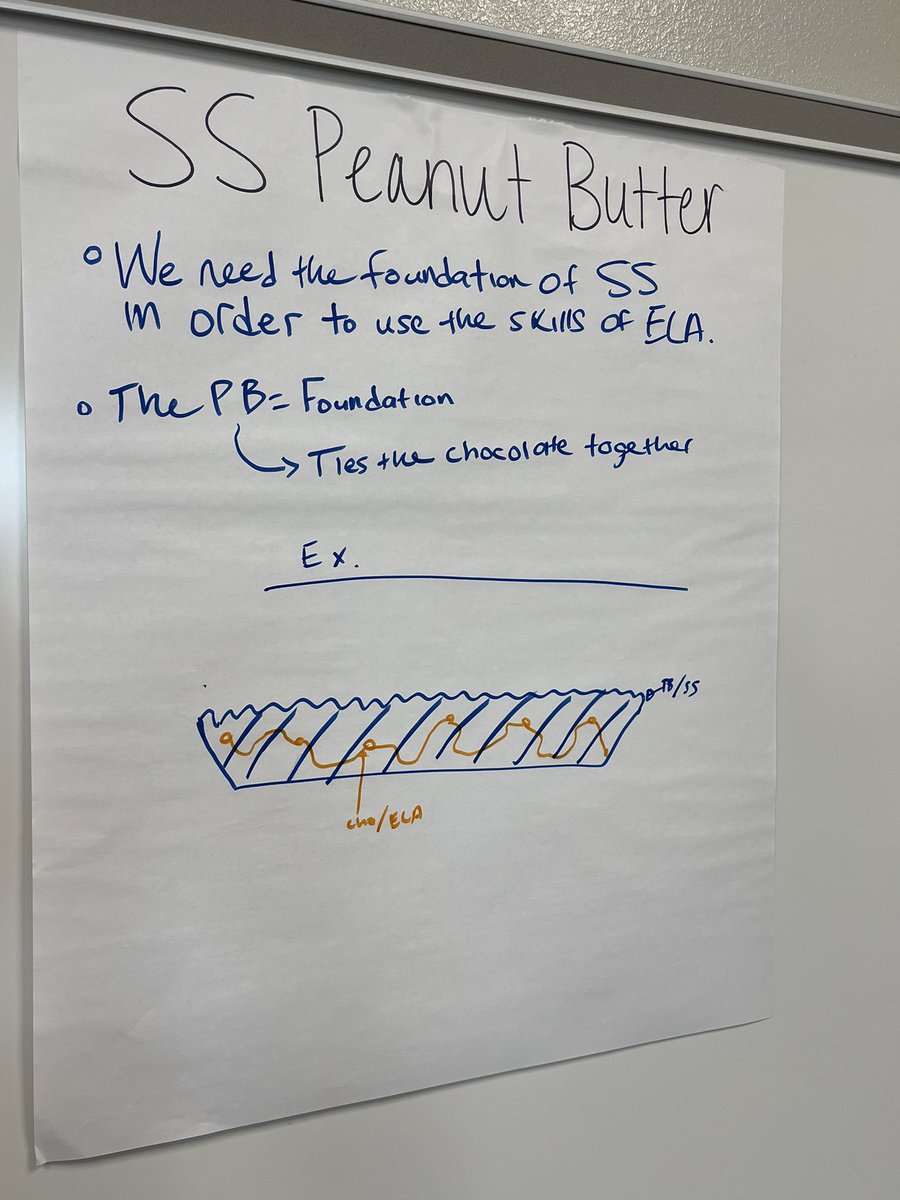 SS Peanut Butter
We need the foundation of SS
in order to use the skills of ELA.
The PB = Foundation
Ties the chocolate together
Ex.
PB/SS
cho/ELA